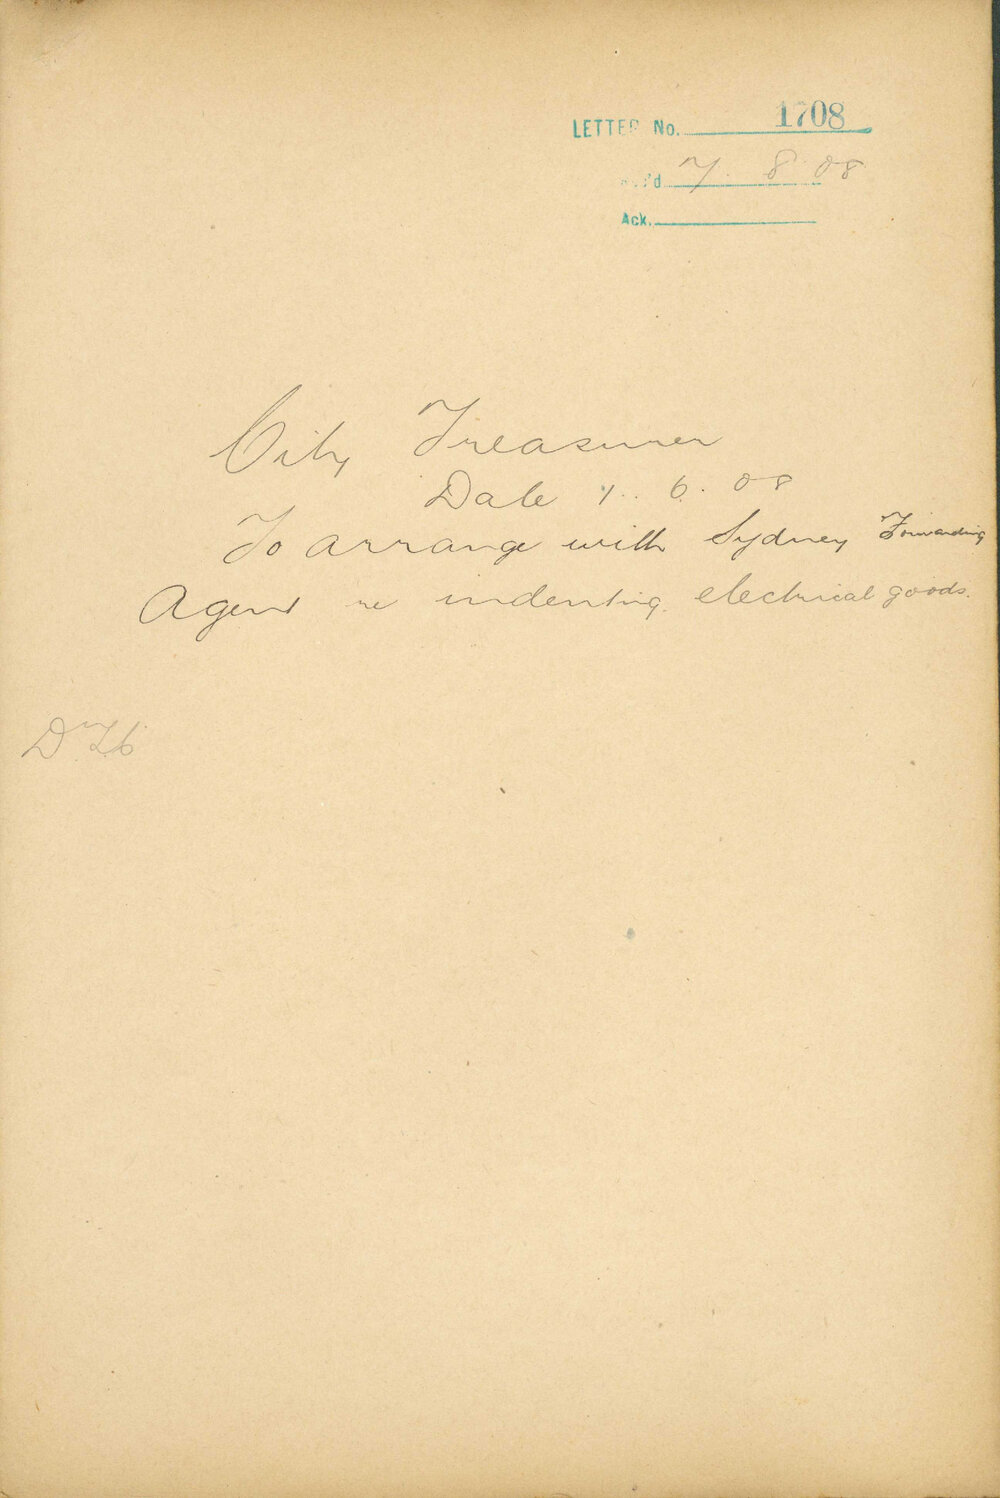 LETTER No. 1708
Rec'd 7. 8. 08
Ack.
City Treasurer
Date 7. 6. 08
To arrange with Sydney Forwarding
Agent re indenting electrical goods.